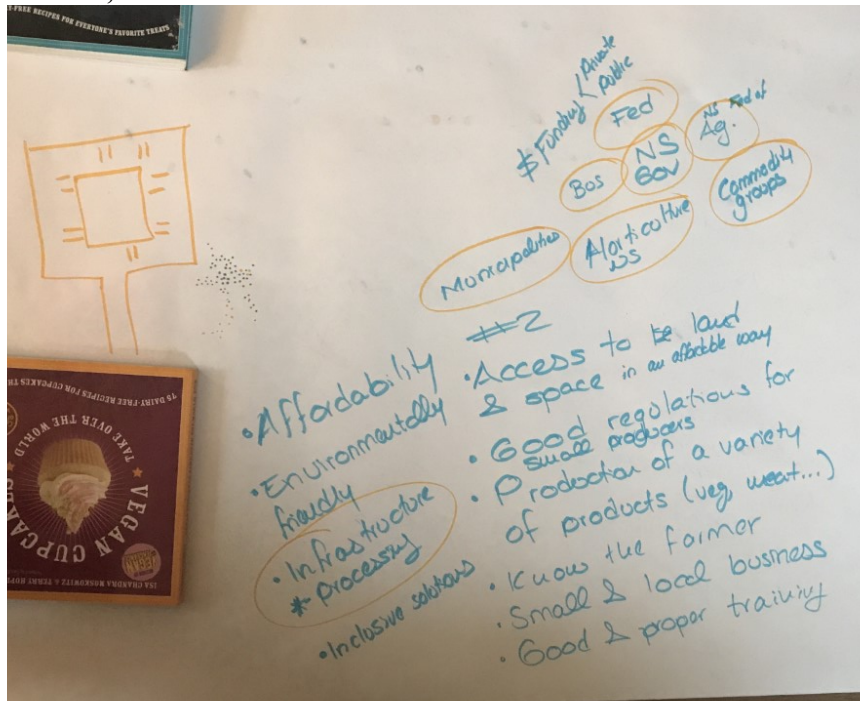 -FREE RECIPES FOR EVERYONE'S FAVORITE TREATS
$ Funding
Private
Public
Fed
NS Fed of
Ag.
NS
Gov
Bos
Commodity
groups
Municipalities
Horticulture
NS
#2
• Affordability
• Environmentally
friendly
• Infrastructure
* processing
• Inclusive solutions
• Access to land
& space in an affordable way
• Good regulations for
small producers
• Production of a variety
of products (veg, meat...)
• Know the farmer
• Small & local business
• Good & proper training
75 DAIRY-FREE RECIPES FOR CUPCAKES TH
TAKE OVER THE WORLD
VEGAN CUPCAKES
ISA CHANDRA MOSKOWITZ & TERRY HOPE